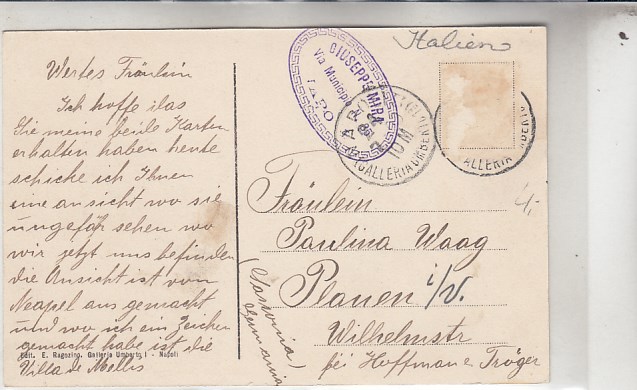 Italien
Wertes Fräulein
Ich hoffe das
Sie meine beide Karten
erhalten haben heute
schicke ich Ihnen
eine ansicht wo sie
ungefär sehen wo
wir jetzt uns befinden
die Ansicht ist von
Neapel aus gemacht
und wo ich ein Zeichen
gemacht habe ist die
Villa de Mellis
Edit. E. Ragozino, Galleria Umberto I - Napoli
GIUSEPPE MIRA
Via Municipio
GALLERIA UMBERTO
10 M
ALLERIA UMBERTO
4,-
Fräulein
Paulina Waag
Plauen i/V.
Wilhelmstr
bei Hoffman e Tröger
(Sassonia)
Germania